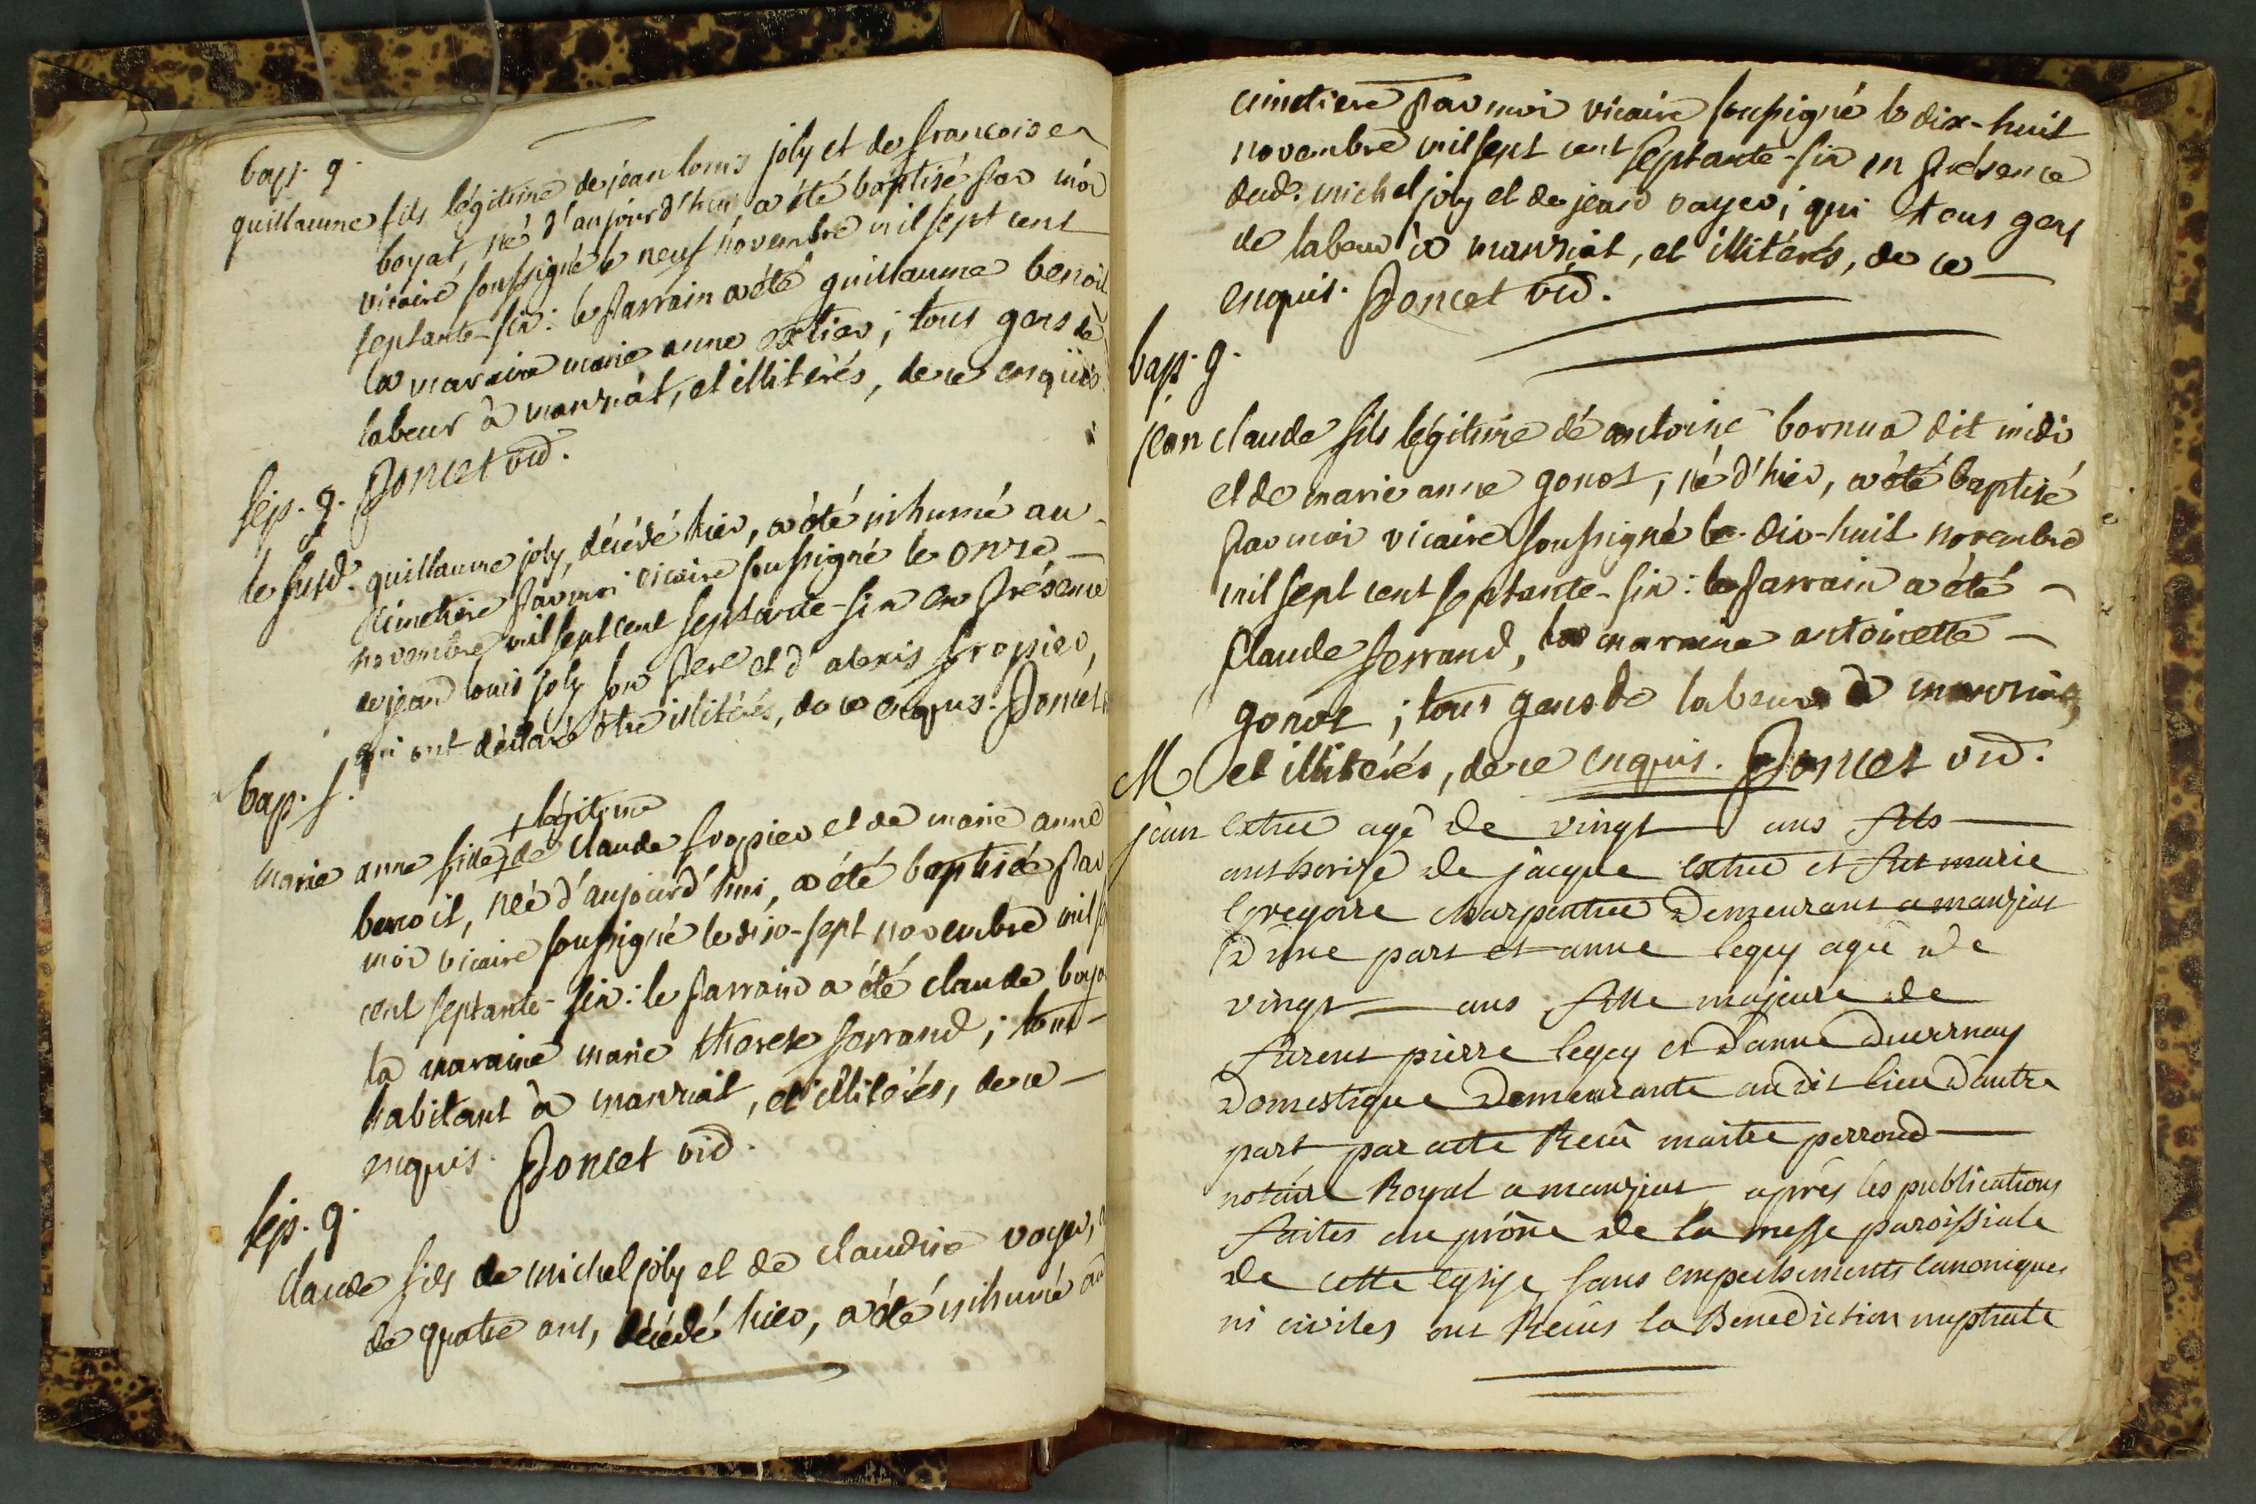 bap. g.
guillaume fils légitime de jean louis joly et de francoise
boyat, né d'aujourd'hui, a été baptisé par moi
vicaire soussigné le neuf novembre mil sept cent
septante-six: le parrain a été guillaume benoit
la maraine marie anne extier; tous gens de
labeur à manziat, et illiterés, de ce enquis
Poncet vic.
sep. g.
le susd. guillaume joly, décédé hier, a été inhumé au
cimetiere par moi vicaire soussigné le onze
novembre mil sept cent septante-six en présence
de jean louis joly son pere et d'alexis fropier,
qui ont déclaré être illitérés, de ce enquis. Poncet
bap. f.
légitime
marie anne fille de claude fropier et de marie anne
benoit, née d'aujourd'hui, a été baptisée par
moi vicaire soussigné le dix-sept novembre mil
cent septante-six: le parrain a été claude
la maraine marie therese ferrand; tous
habitant à manziat, et illiterés, de ce
enquis. Poncet vic.
sep. g.
claude fils de michel joly et de claudine voyer,
de quatre ans, décédé hier, a été inhumé au
cimetiere par moi vicaire soussigné le dix-huit
novembre mil sept cent septante-six en présence
dud. michel joly et de jean voyer; qui tous gens
de labeur à manziat, et illitérés, de ce
enquis. Poncet vic.
bap. g.
jean claude fils légitime de antoine bornua dit midi
et de marie anne gonot, né d'hier, a été baptisé
par moi vicaire soussigné le dix-huit novembre
mil sept cent septante-six: le parrain a été
claude ferrand, la maraine antoinette
gonot; tous gens de labeur à manziat,
M et illitérés, de ce enquis. Poncet vic.
jean extier agé de vingt ans fils
authorise de jacque extier et fut marie
Gregoire charpentier Demeurant a manziat
D'une part et anne legey agée de
vingt ans fille majeure de
furent pierre legey et d'anne duvernay
Domestique Demeurante au dit lieu d'autre
part par acte Recû maitre perroud
notaire Royal a manziat après les publications
faites au prône de la messe paroissiale
de cette eglise sans empechements canoniques
ni civiles ont Recus la Benediction nuptiale